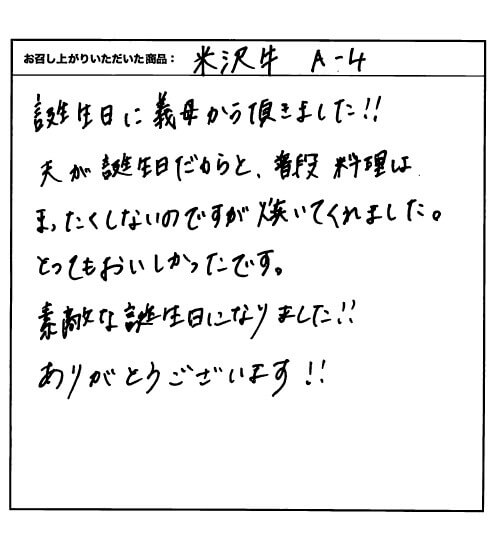 お召し上がりいただいた商品： 米沢牛 A-4
誕生日に義母から頂きました!!
夫が誕生日だからと、普段料理は
まったくしないのですが焼いてくれました。
とってもおいしかったです。
素敵な誕生日になりました!!
ありがとうございます!!